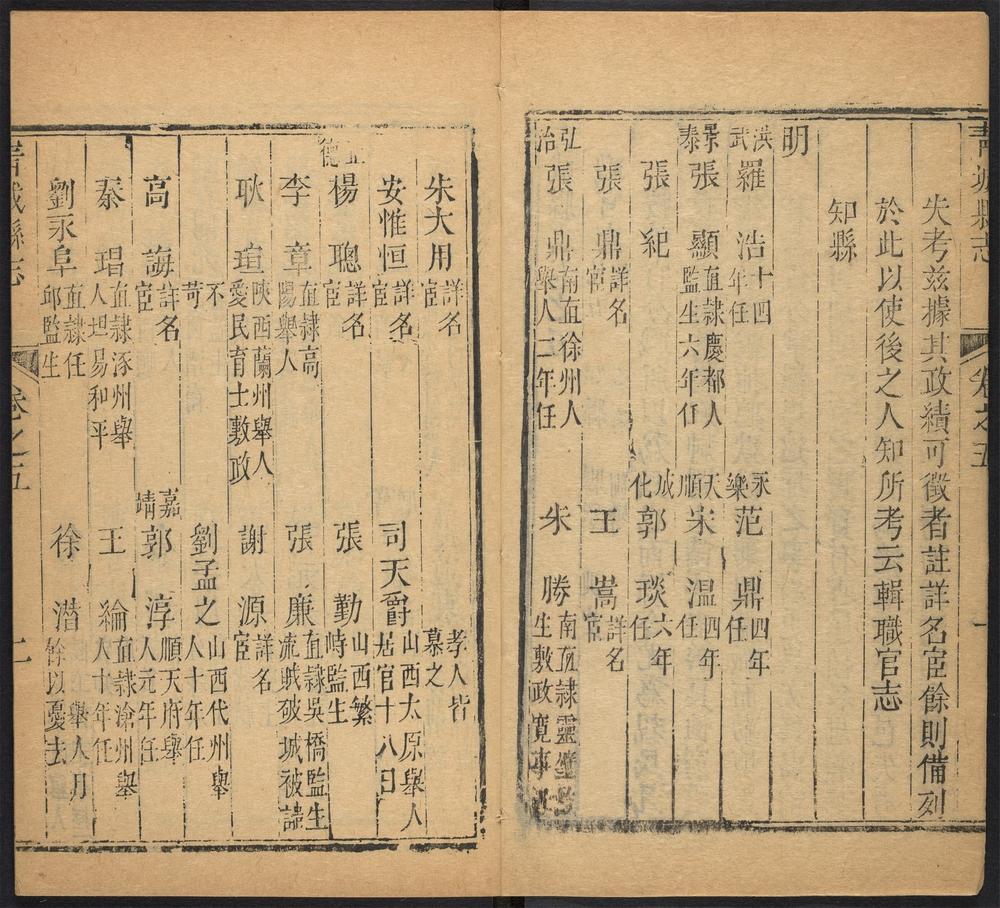 青城縣志 卷之五 一
失考茲據其政績可徵者註詳名宦餘則備列
於此以使後之人知所考云輯職官志
知縣
明
洪武 羅浩 十四年任 永樂 范鼎 四年任
景泰 張顯 直隸慶都人監生六年任 天順 宋溫 四年任
張紀 成化 郭琰 六年任
張鼎 詳名宦 王嵩 詳名宦
弘治 張鼎 南直徐州人舉人二年任 朱勝 南直隸靈璧監生敷政寬事
朱大用 詳名宦 孝人皆慕之
安惟恒 詳名宦 司天爵 山西太原舉人居官十八日
正德 楊聰 詳名宦 張勤 山西繁峙監生
李章 直隸高陽舉人 張廉 直隸吳橋監生流賊破城被譴
耿瑄 陝西蘭州舉人愛民育士敷政 謝源 詳名宦
不苛 劉孟之 山西代州舉人十年任
高誨 詳名宦 嘉靖 郭淳 順天府舉人元年任
秦瑁 直隸涿州舉人坦易和平 王綸 直隸滄州舉人十年任
劉永阜 直隸任邱監生 徐潛 舉人月餘以憂去
青城縣志 卷之五 二